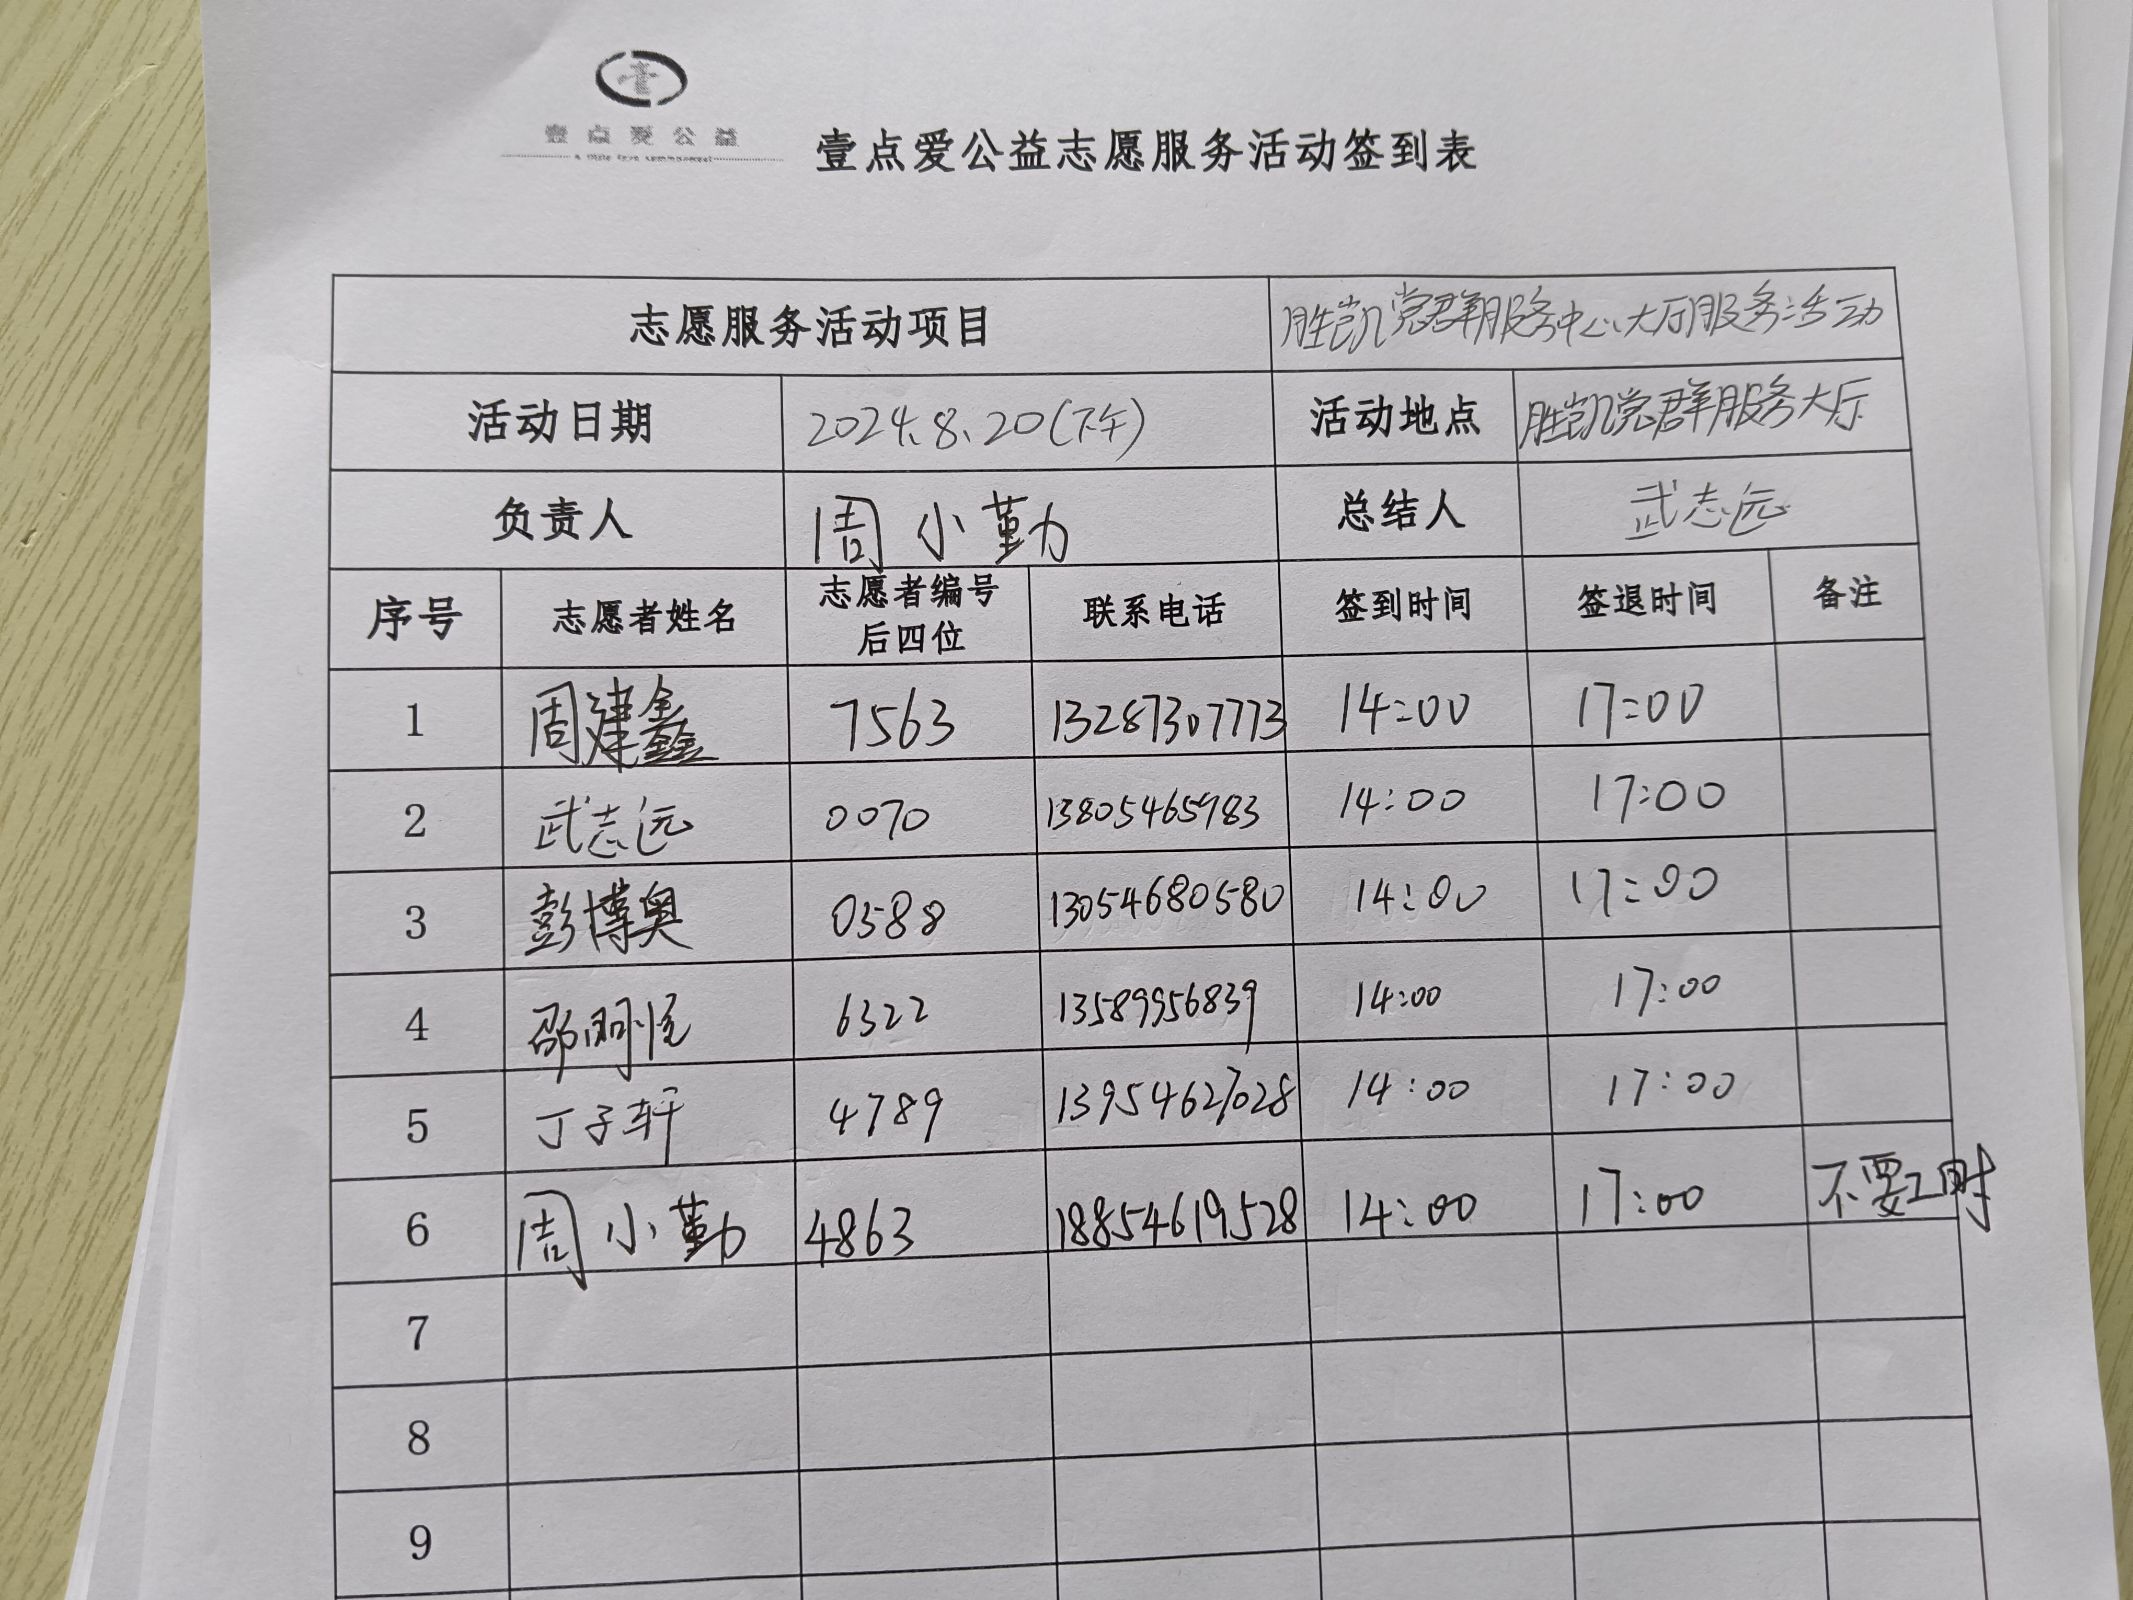 壹点爱公益
壹点爱公益志愿服务活动签到表
志愿服务活动项目 胜凯党群服务中心大厅服务活动
活动日期 2024.8.20(下午) 活动地点 胜凯党群服务大厅
负责人 周小勤 总结人 武志远
序号 志愿者姓名 志愿者编号 联系电话 签到时间 签退时间 备注
后四位
1 周建鑫 7563 13287307773 14:00 17:00
2 武志远 0070 13805465983 14:00 17:00
3 彭博奥 0588 13054680580 14:00 17:00
4 邵明恒 6322 13589956839 14:00 17:00
5 丁子轩 4789 13954627028 14:00 17:00
6 周小勤 4863 18854619528 14:00 17:00 不要工时
7
8
9